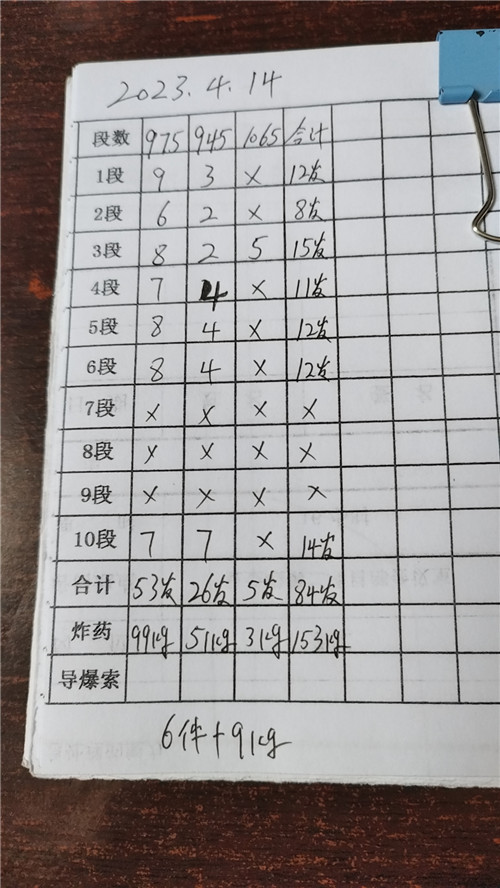 2023.4.14
段数 975 945 1065 合计
1段 9 3 × 12发
2段 6 2 × 8发
3段 8 2 5 15发
4段 7 4 × 11发
5段 8 4 × 12发
6段 8 4 × 12发
7段 × × × ×
8段 × × × ×
9段 × × × ×
10段 7 7 × 14发
合计 53发 26发 5发 84发
炸药 99kg 51kg 3kg 153kg
导爆索
6件+9kg